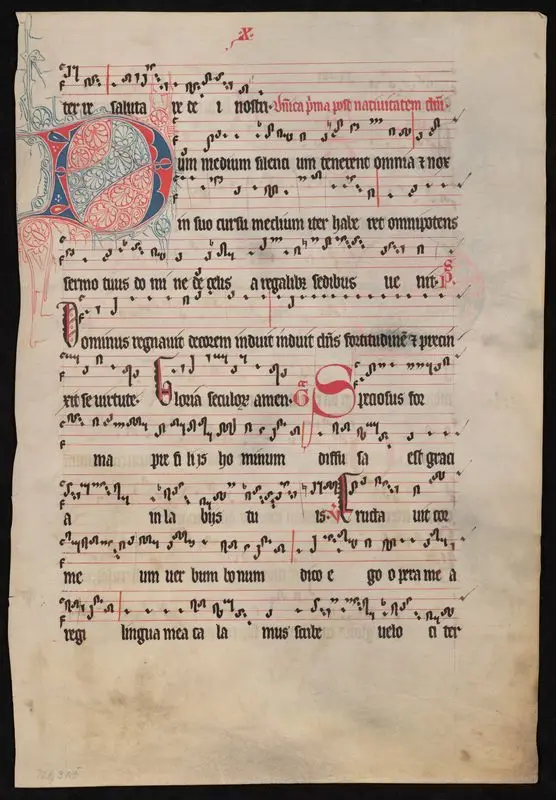 ·x·
ter re saluta re de i nostri· Dn̄ica p̄ma post natiuitatem dn̄i
Dum medium silenti um tenerent omnia ⁊ nox
in suo cursu medium iter habe ret omnipotens
sermo tuus do mi ne de celis a regalibꝫ sedibus ue nit· p̄s
Dominus regnauit decorem induit induit dn̄s fortitudinē ⁊ precin
xit se uirtute· Gloria seculoꝝ amen· Gr̄ Speciosus for
ma pre fi lijs ho minum diffu sa est graci
a in la bijs tu is· v̄ Eructa uit cor
me um uer bum bonum dico e go opera me a
regi lingua mea ca la mus scribe uelo ci ter